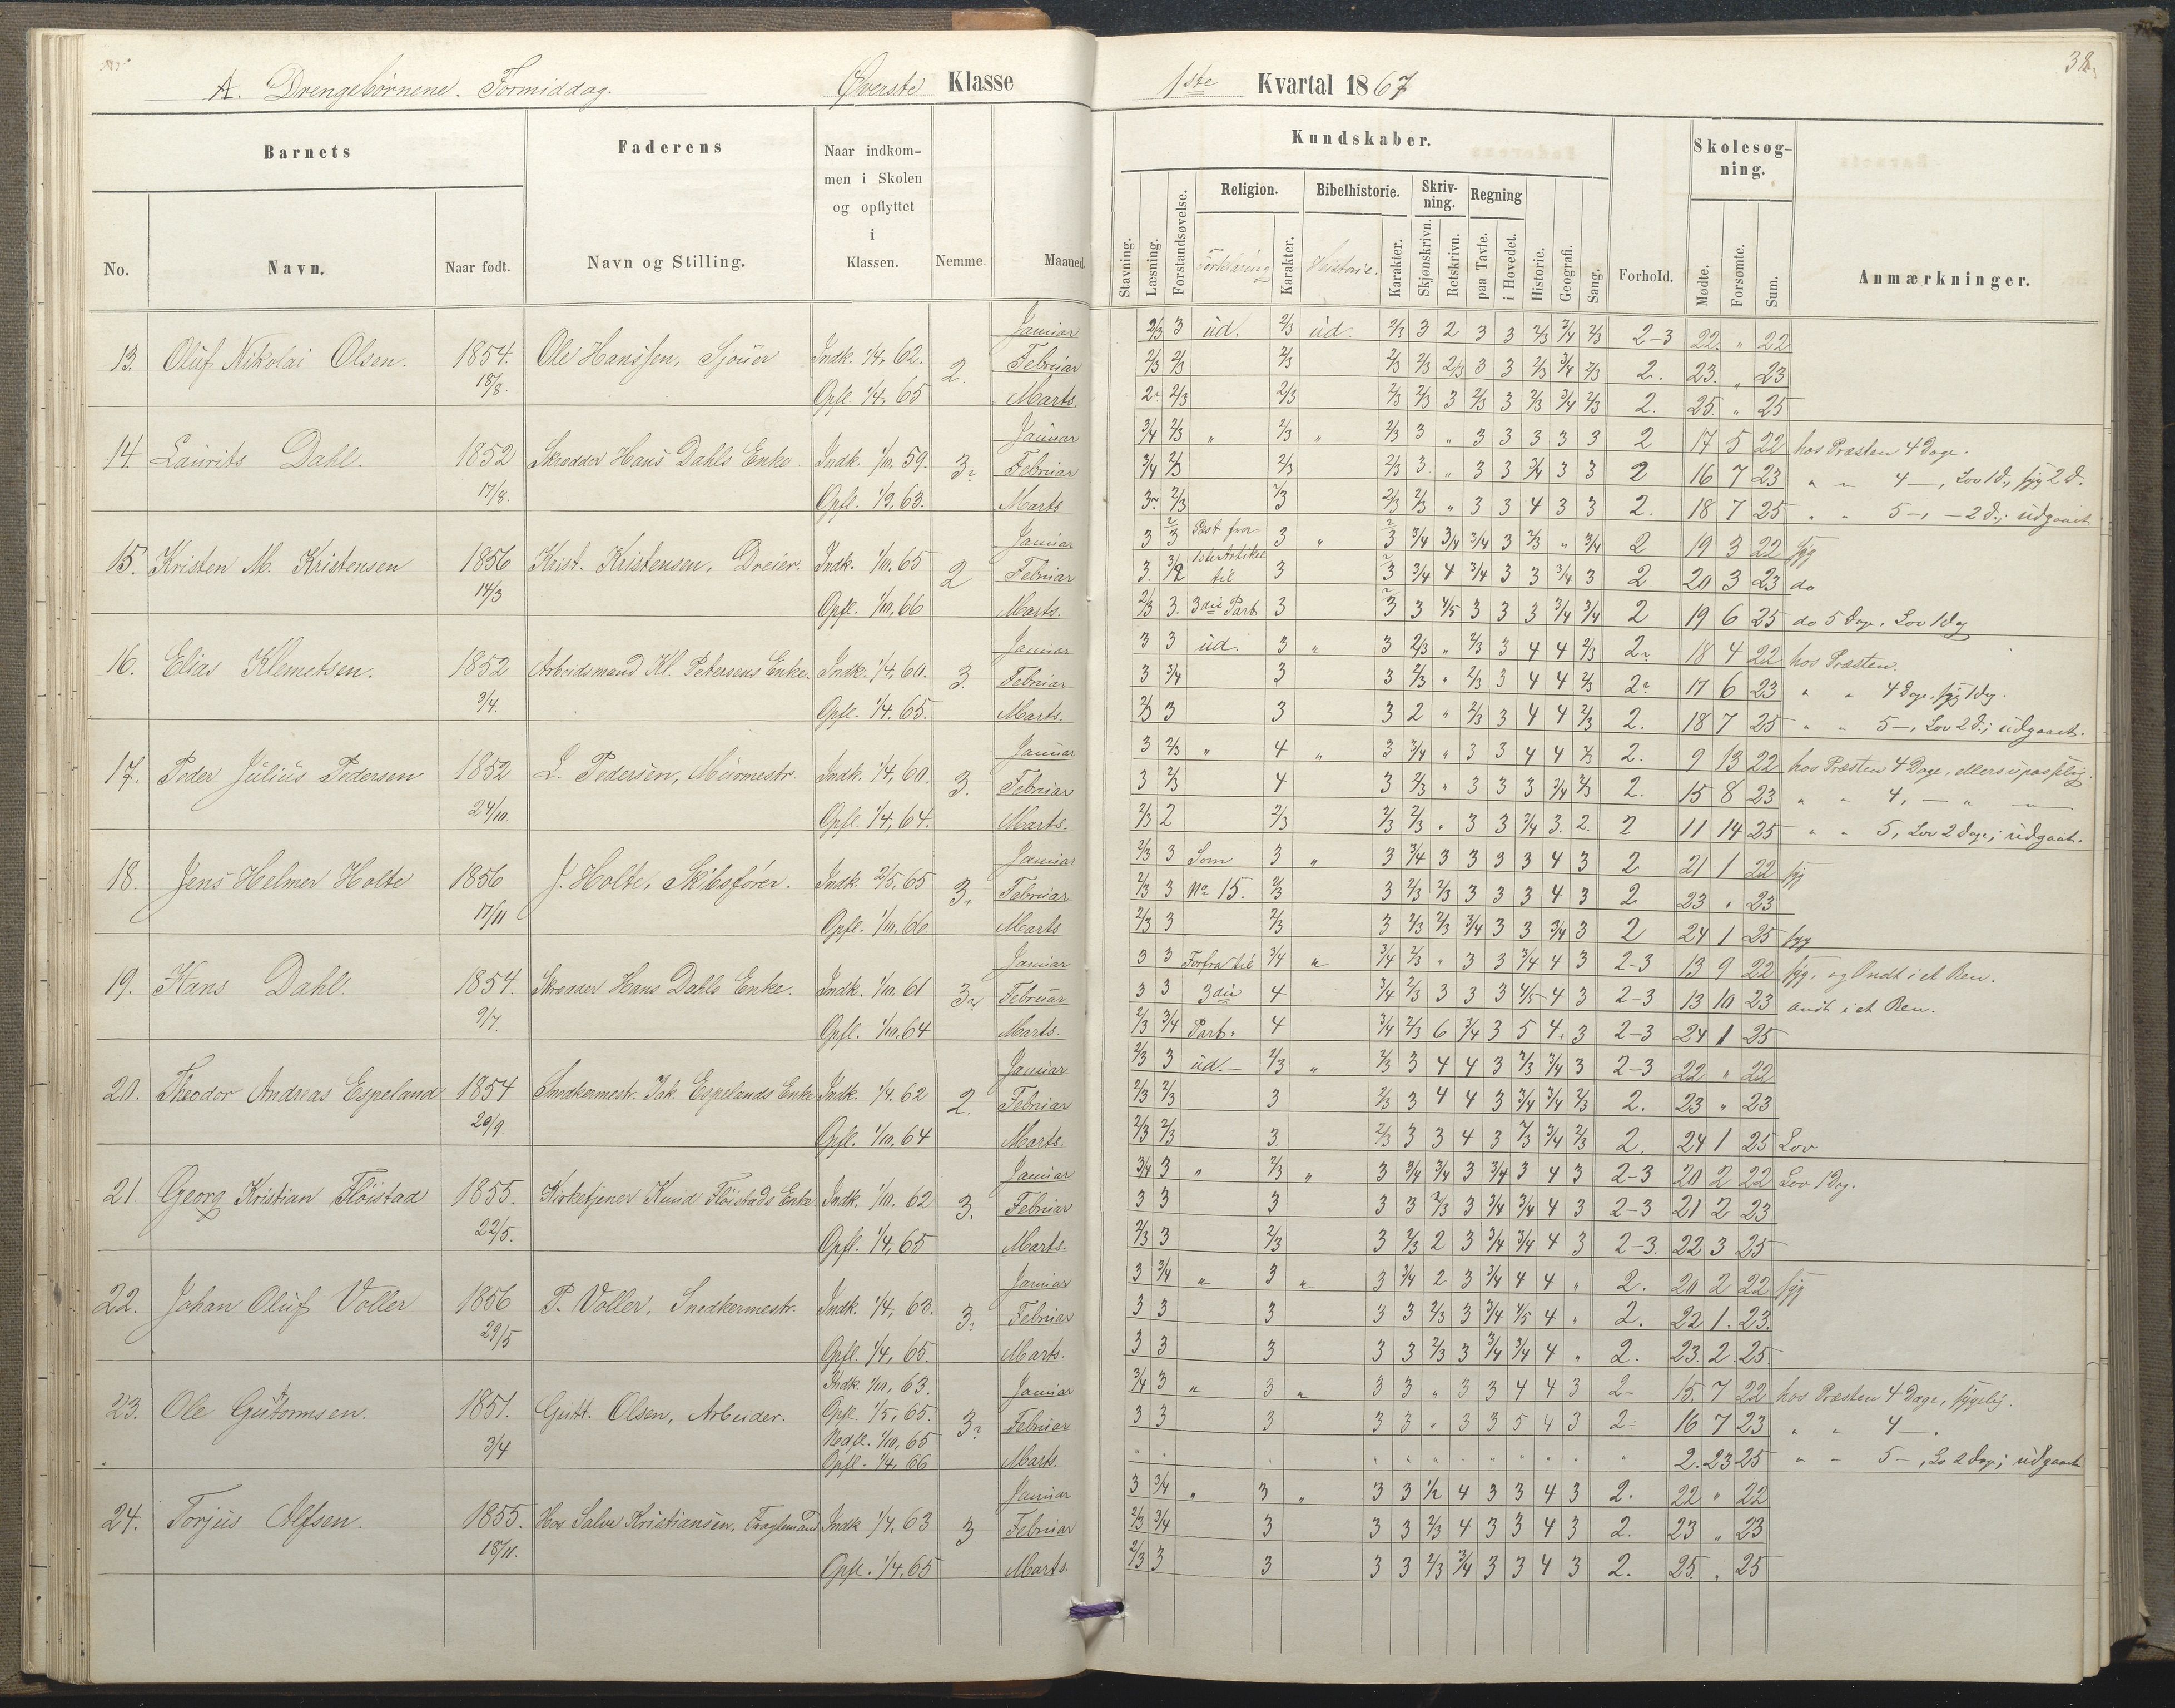 A. Drengebørnene. Formiddag. Øverste Klasse
1ste Kvartal 1867
38
Barnets
Faderens
Naar indkom-
men i Skolen
og opflyttet
i
Klassen.
No.
Navn.
Naar født.
Navn og Stilling.
Nemme.
Maaned.
Kundskaber.
Skolesøg-
ning.
Religion.
Bibelhistorie.
Skriv-
ning.
Regning
Stavning.
Læsning.
Forstandsøvelse.
Forklaring
Karakter.
Historie.
Karakter.
Skjønskrivn.
Retskrivn.
paa Tavle.
i Hovedet.
Historie.
Geografi.
Sang.
Forhold.
Mødte.
Forsømte.
Sum.
Anmærkninger.
13. Oluf Nikolai Olsen. 1854. 18/8. Ole Hanssen, Sjouer Indk. 1/4, 62. Opfl. 1/4, 65 2.
Januar 2/3 3 ud. 2/3 ud 2/3 3 2 3 3 2/3 3/4 2/3 2-3 22. " 22
Februar 2/3 2/3 2/3 2/3 2/3 2/3 3 3 2/3 3/4 2/3 2. 23. " 23
Marts. 2. 2/3 2/3 2/3 2/3 3 2/3 3 2/3 3/4 2/3 2. 25. " 25
14. Laurits Dahl. 1852 17/8. Skrædder Hans Dahls Enke. Indk. 1/10. 59. Opfl. 1/2, 63. 3
Januar 3/4 2/3 " 2/3 " 2/3 3 " 3 3 3 3 3 2 17 5 22 hos Præsten 4 Dage.
Februar 3/4 2/3 2/3 2/3 3 " 3 3 3/4 3 3 2 16 7 23 " " 4 —, Lov 1 d., syg 2 d.
Marts 3 2/3 2/3 2/3 2/3 " 3 3 4 3 3 2. 18 7 25 " " 5 —, — 2 d.; udgaaet
15. Kristen M. Kristensen 1856 14/3 Krist. Kristensen, Dreier. Indk. 1/10. 65 Opfl. 1/10, 66 2
Januar 3 3 fra 3 " 3 3/4 3/4 3/4 3 2/3 " 3/4 2 19 3 22 syg
Februar 3. 1ste Artikel til 3 3 3/4 4 3/4 3 3 3/4 3 2 20 3 23 do
Marts. 2/3 3. 3die Part 3 3 3 4/5 3 3 3 3/4 3/4 2 19 6 25 do 5 Dage, Lov 1 Dag
16. Elias Klemetsen. 1852 3/4. Arbeidsmand Kl. Petersens Enke. Indk. 1/4, 60. Opfl. 1/4. 65. 3.
Januar 3 3 ud. 3 " 3 2/3 " 2/3 3 4 4 2/3 2 18 4 22 hos Præsten.
Februar 3 3/4 3 3 2/3 " 2/3 3 4 4 2/3 2 17 6 23 " " 4 Dage, syg 1 Dag.
Marts. 2/3 3 3 3 2 " 2/3 3 4 4 2/3 2. 18 7 25 " " 5 —, Lov 2 d.; udgaaet.
17. Peder Julius Pedersen 1852 24/10. L. Pedersen, Muurmestr. Indk. 1/4, 60. Opfl. 1/4, 64. 3.
Januar 3 2/3 " 4 " 3 3/4 " 3 3 4 4 2/3 2. 9 13 22 hos Præsten 4 Dage, ellers upasselig.
Februar 3 2/3 4 3 2/3 " 3 3 3 3/4 2/3 2. 15 8 23 " " 4, — " —
Marts. 2/3 2 2/3 2/3 2/3 " 3 3 3/4 3. 2. 2 11 14 25 " " 5, Lov 2 Dage; udgaaet.
18. Jens Helmer Holte 1856 17/11 J. Holte, Skibsfører. Indk. 2/5, 65 Opfl. 1/10, 66. 3.
Januar 2/3 3 Som 3 " 3 3/4 3 3 3 3 4 3 2 21 1 22 syg
Februar 2/3 3 No 15. 2/3 3 2/3 2/3 3 3 3 4 3 2 23 " 23
Marts 2/3 3 2/3 3 2/3 2/3 3/4 3 3 3/4 3 2 24 1 25 syg
19. Hans Dahl. 1854. 9/7. Skrædder Hans Dahls Enke. Indk. 1/10. 61 Opfl. 1/10, 64 3
Januar 3 3 Forfra til 3/4 " 3/4 2/3 " 3 3 3/4 4 3 2-3 13 9 22 syg, og Ondt i et Ben.
Februar 3 3 3die 4 3/4 2/3 3 3 3 4/5 4 3 2-3 13 10 23 ondt i et Ben.
Marts. 2/3 3/4 Part. 4 3/4 2/3 6 3/4 3 5 4. 3 2-3 24 1 25
20. Theodor Andreas Espeland 1854 20/9. Snedkermestr. Jak. Espelands Enke Indk. 1/4. 62 Opfl. 1/10, 64 2.
Januar 2/3 3 ud. — 2/3 " 2/3 3 4 4 3 2/3 3/4 3 2-3 22 " 22
Februar 2/3 2/3 3 2/3 3 4 4 3 3/4 3/4 2/3 2. 23 " 23
Marts. 2/3 2/3 3. 2/3 3 3 4 3 2/3 3/4 2/3 2. 24 1 25 Lov
21. Georg Kristian Fløistad 1855. 22/5. Kirketjener Knud Fløistads Enke. Indk. 1/10. 62 Opfl. 1/4, 65 3.
Januar 3/4 3 " 2/3 " 3 3/4 3/4 3 3/4 3 4 3 2-3 20 2 22 Lov 1 Dag.
Februar 3 3 3 3 3 2/3 3 3/4 3/4 4 3 2-3 21 2 23
Marts. 2/3 3 2/3 3 2/3 2 3 3/4 3/4 4 3 2-3. 22 3 25
22. Johan Oluf Voller 1856 29/5 P. Voller, Snedkermestr. Indk. 1/4, 63. Opfl. 1/4, 65. 3
Januar 3 3/4 " 3 " 3 3/4 2 3 3/4 4 4 " 2. 20 2 22 syg
Februar 3 3 3 3 3 2/3 3 3/4 4/5 4 " 2. 22 1. 23.
Marts. 3 3 3 3 3 2/3 3 3/4 3/4 4 " 2. 23. 2 25
23. Ole Guttormsen. 1851. 3/4 Gutt. Olsen, Arbeider. Indk. 1/10, 63. Opfl. 1/5, 65. Nedfl. 1/10, 65 Opfl. 1/4, 66 3
Januar 3/4 3 " 3 " 3 3 " 3 3 4 4 3 2- 15. 7 22 hos Præsten 4 Dage, sygelig.
Februar 3 3 3 3 3 " 3 3 5 4 3 2- 16 7 23 " " 4 —.
Marts. " " " " " " " " " " " " 2. 23 25 " " 5 —, Lov 2 Dage; udgaaet
24. Torjus Olfsen. 1855. 18/11. Hos Salve Kristiansen, Fragtemand Indk 1/4, 63 Opfl. 1/4. 65 3
Januar 3 3/4 " 3 " 3 3 1/2 4 3 3 4 3 2. 22 " 22
Februar 2/3 3/4 3 3 3 2/3 4 3 3 4 3 2. 23 " 23
Marts. 2/3 3 3 3 3 2/3 3/4 3 3 4 3 2. 25. " 25